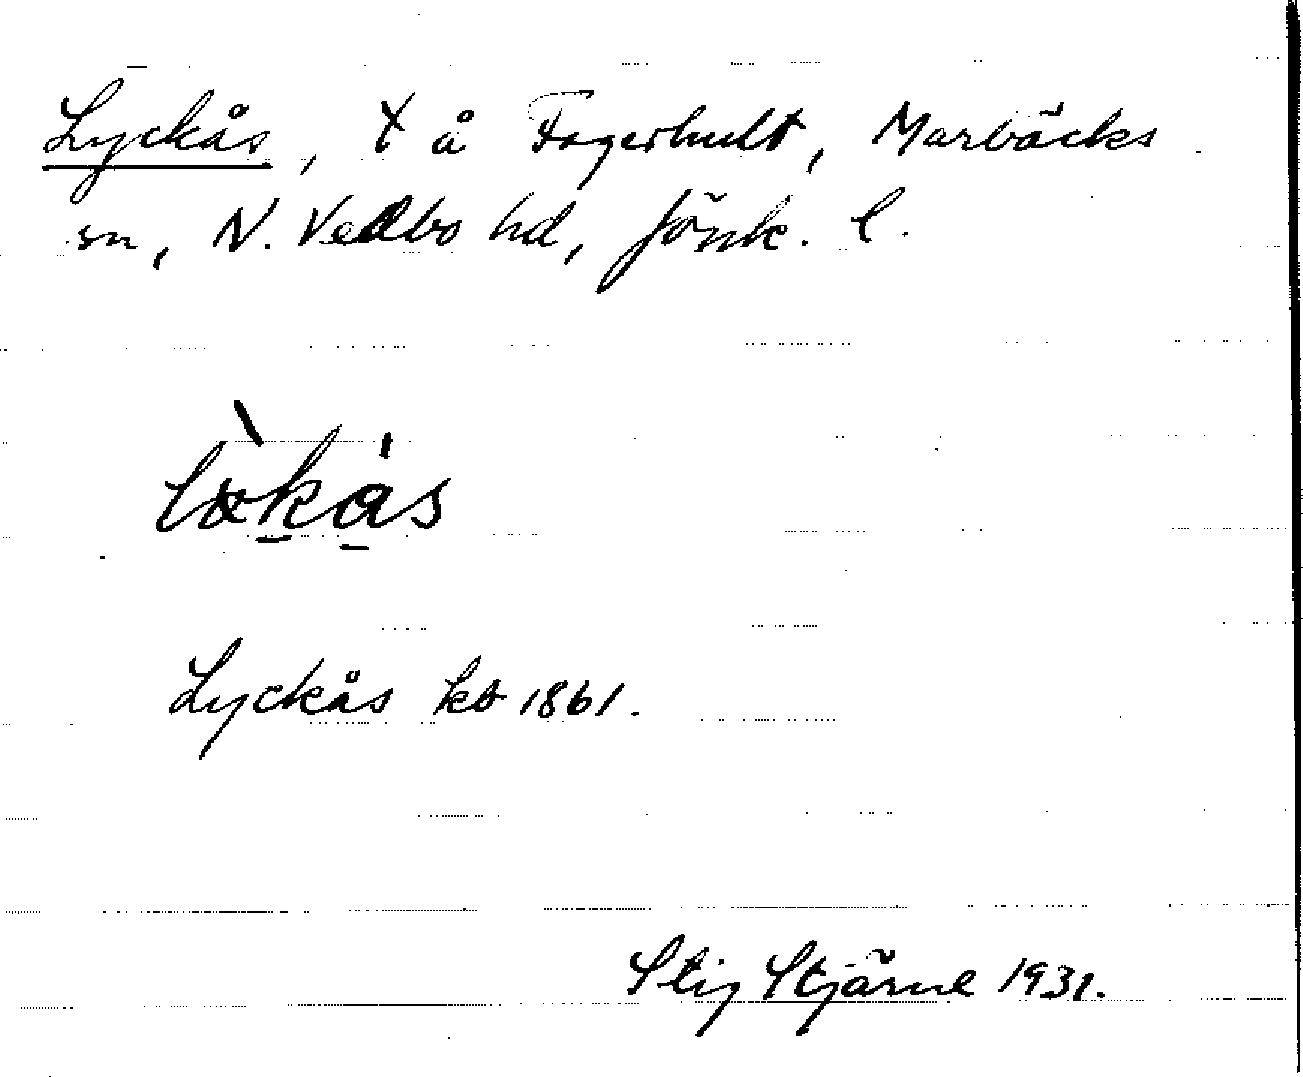 Lyckås, t å Fagerhult, Marbäcks
sn, N. Vedbo hd, Jönk. l.
Lyckås kt 1861.
Stig Stjärne 1931.